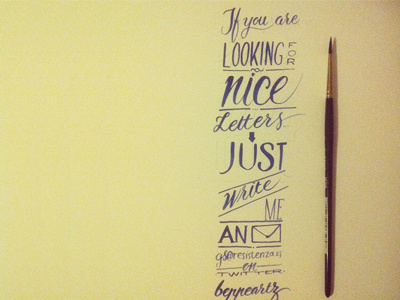 If you are
LOOKING FOR
nice
Letters
JUST
Write
ME
AN
gs@resistenza.es
on
TWITTER
beppeartz